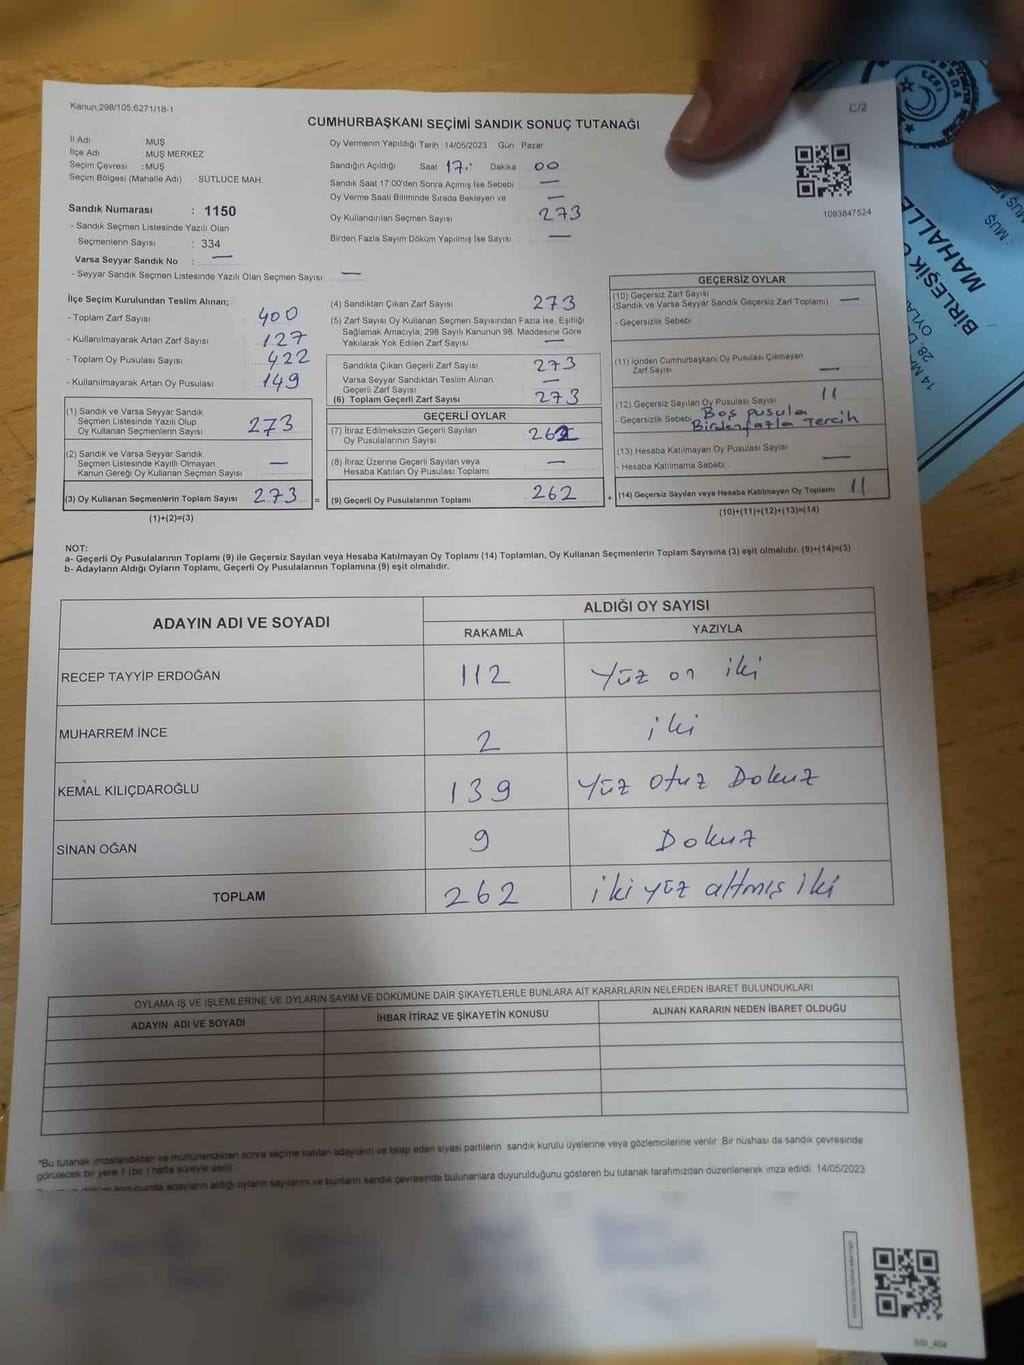 Kanun 298/105;6271/18-1
C/2
CUMHURBAŞKANI SEÇİMİ SANDIK SONUÇ TUTANAĞI
İl Adı MUŞ
İlçe Adı MUŞ MERKEZ
Seçim Çevresi :MUŞ
Seçim Bölgesi (Mahalle Adı) SÜTLÜCE MAH.
Sandık Numarası : 1150
- Sandık Seçmen Listesinde Yazılı Olan
Seçmenlerin Sayısı : 334
Varsa Seyyar Sandık No : —
- Seyyar Sandık Seçmen Listesinde Yazılı Olan Seçmen Sayısı: —
Oy Vermenin Yapıldığı Tarih :14/05/2023 Gün : Pazar
Sandığın Açıldığı Saat 17.. Dakika 00
Sandık Saat 17:00'den Sonra Açımış İse Sebebi —
Oy Verme Saati Bitiminde Sırada Bekleyen ve —
Oy Kullandırılan Seçmen Sayısı 273
Birden Fazla Sayım Döküm Yapılmış İse Sayısı —
1093847524
İlçe Seçim Kurulundan Teslim Alınan;
- Toplam Zarf Sayısı : 400
- Kullanılmayarak Artan Zarf Sayısı : 127
- Toplam Oy Pusulası Sayısı : 422
- Kullanılmayarak Artan Oy Pusulası : 149
(1) Sandık ve Varsa Seyyar Sandık
Seçmen Listesinde Yazılı Olup
Oy Kullanan Seçmenlerin Sayısı 273
(2) Sandık ve Varsa Seyyar Sandık
Seçmen Listesinde Kayıtlı Olmayan
Kanun Gereği Oy Kullanan Seçmen Sayısı —
(3) Oy Kullanan Seçmenlerin Toplam Sayısı 273 =
(1)+(2)=(3)
(4) Sandıktan Çıkan Zarf Sayısı 273
(5) Zarf Sayısı Oy Kullanan Seçmen Sayısından Fazla İse, Eşitliği
Sağlamak Amacıyla, 298 Sayılı Kanunun 98. Maddesine Göre
Yakılarak Yok Edilen Zarf Sayısı —
Sandıkta Çıkan Geçerli Zarf Sayısı 273
Varsa Seyyar Sandıktan Teslim Alınan
Geçerli Zarf Sayısı —
(6) Toplam Geçerli Zarf Sayısı 273
GEÇERLİ OYLAR
(7) İtiraz Edilmeksizin Geçerli Sayılan
Oy Pusulalarının Sayısı 262
(8) İtiraz Üzerine Geçerli Sayılan veya
Hesaba Katılan Oy Pusulası Toplamı —
(9) Geçerli Oy Pusulalarının Toplamı 262 +
GEÇERSİZ OYLAR
(10) Geçersiz Zarf Sayısı
(Sandık ve Varsa Seyyar Sandık Geçersiz Zarf Toplamı) —
- Geçersizlik Sebebi
(11) İçinden Cumhurbaşkanı Oy Pusulası Çıkmayan
Zarf Sayısı —
(12) Geçersiz Sayılan Oy Pusulası Sayısı 11
- Geçersizlik Sebebi Boş pusula
Birden fazla Tercih
(13) Hesaba Katılmayan Oy Pusulası Sayısı
- Hesaba Katılmama Sebebi —
(14) Geçersiz Sayılan veya Hesaba Katılmayan Oy Toplamı 11
(10)+(11)+(12)+(13)=(14)
NOT:
a- Geçerli Oy Pusulalarının Toplamı (9) ile Geçersiz Sayılan veya Hesaba Katılmayan Oy Toplamı (14) Toplamları, Oy Kullanan Seçmenlerin Toplam Sayısına (3) eşit olmalıdır. (9)+(14)=(3)
b- Adayların Aldığı Oyların Toplamı, Geçerli Oy Pusulalarının Toplamına (9) eşit olmalıdır.
ADAYIN ADI VE SOYADI
ALDIĞI OY SAYISI
RAKAMLA YAZIYLA
RECEP TAYYİP ERDOĞAN 112 Yüz on iki
MUHARREM İNCE 2 iki
KEMAL KILIÇDAROĞLU 139 Yüz Otuz Dokuz
SİNAN OĞAN 9 Dokuz
TOPLAM 262 iki yüz altmış iki
OYLAMA İŞ VE İŞLEMLERİNE VE OYLARIN SAYIM VE DÖKÜMÜNE DAİR ŞİKAYETLERLE BUNLARA AİT KARARLARIN NELERDEN İBARET BULUNDUKLARI
ADAYIN ADI VE SOYADI İHBAR İTİRAZ VE ŞİKAYETİN KONUSU ALINAN KARARIN NEDEN İBARET OLDUĞU
*Bu tutanak imzalandıktan ve mühürlendikten sonra seçime katılan adayların ve talep eden siyasi partilerin sandık kurulu üyelerine veya gözlemcilerine verilir. Bir nüshası da sandık çevresinde
görülecek bir yere 1 (bir) hafta süreyle asılır.
sonucunda adayların aldığı oyların sayılarını ve bunların sandık çevresinde bulunanlara duyurulduğunu gösteren bu tutanak tarafımızdan düzenlenerek imza edildi. 14/05/2023
: MUŞ
BİRLEŞİK
MAHALLE
14 MA
28. D